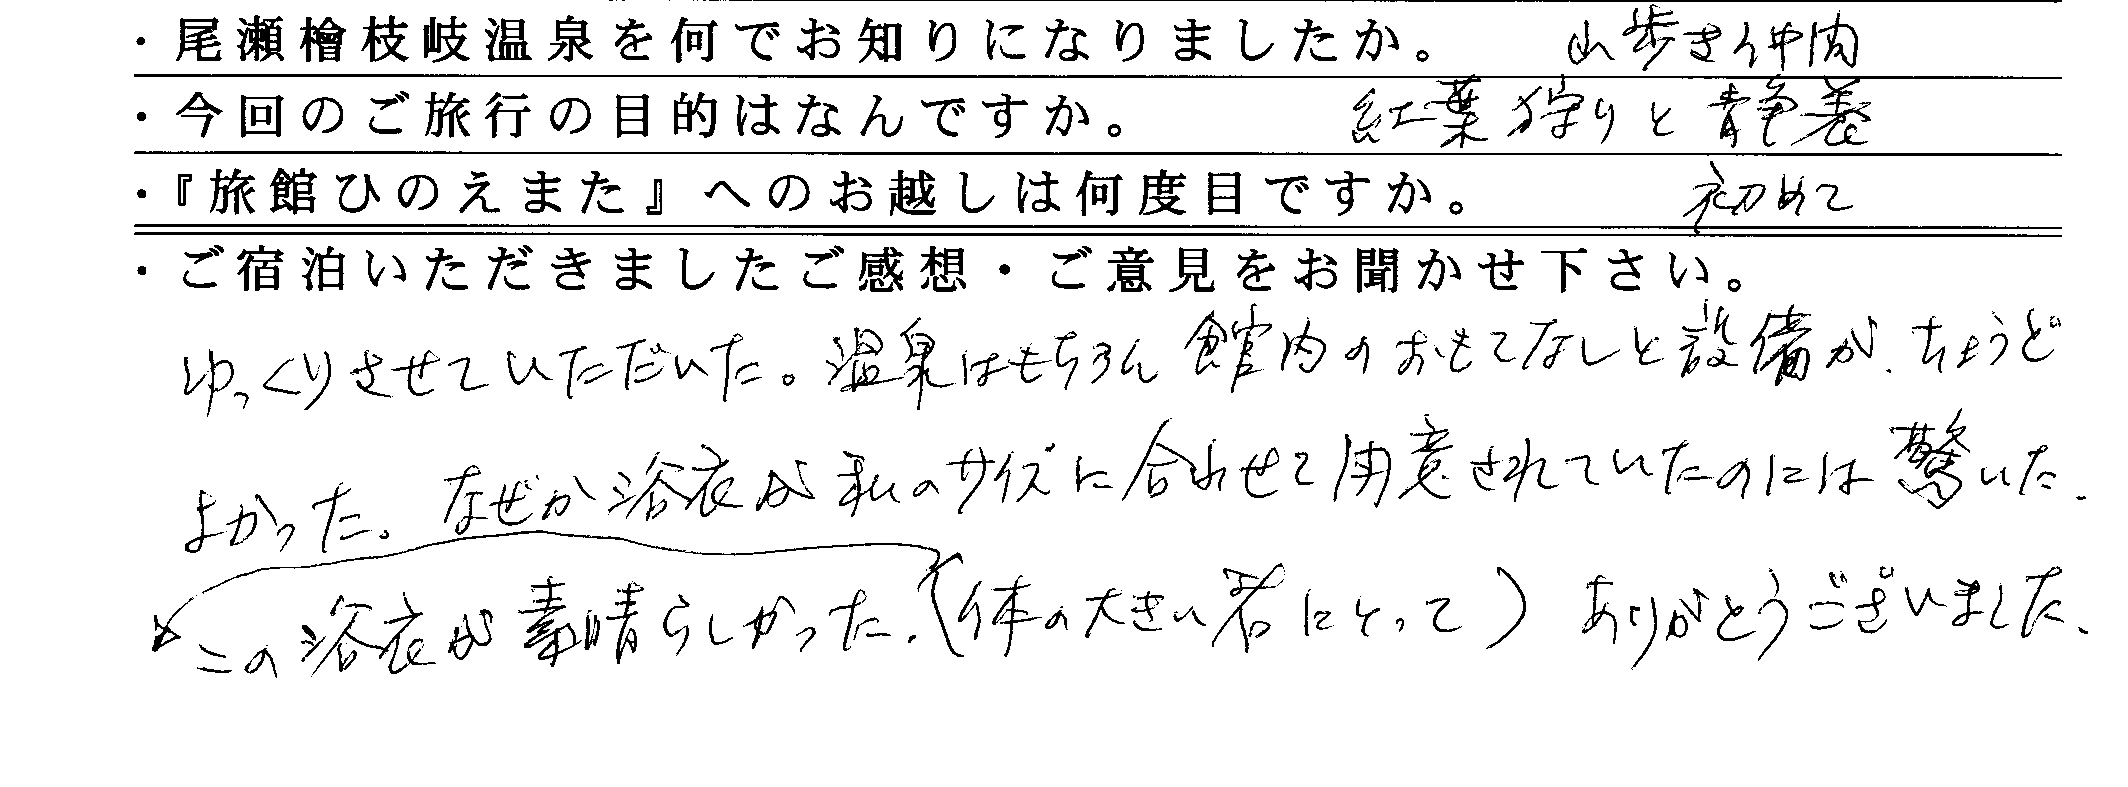 ・尾瀬檜枝岐温泉を何でお知りになりましたか。 山歩き仲間
・今回のご旅行の目的はなんですか。 紅葉狩りと静養
・『旅館ひのえまた』へのお越しは何度目ですか。 初めて
・ご宿泊いただきましたご感想・ご意見をお聞かせ下さい。
ゆっくりさせていただいた。温泉はもちろん館内のおもてなしと設備が、ちょうど
よかった。なぜか浴衣が私のサイズに合わせて用意されていたのには驚いた。
この浴衣が素晴らしかった。(体の大きい者にとって) ありがとうございました。